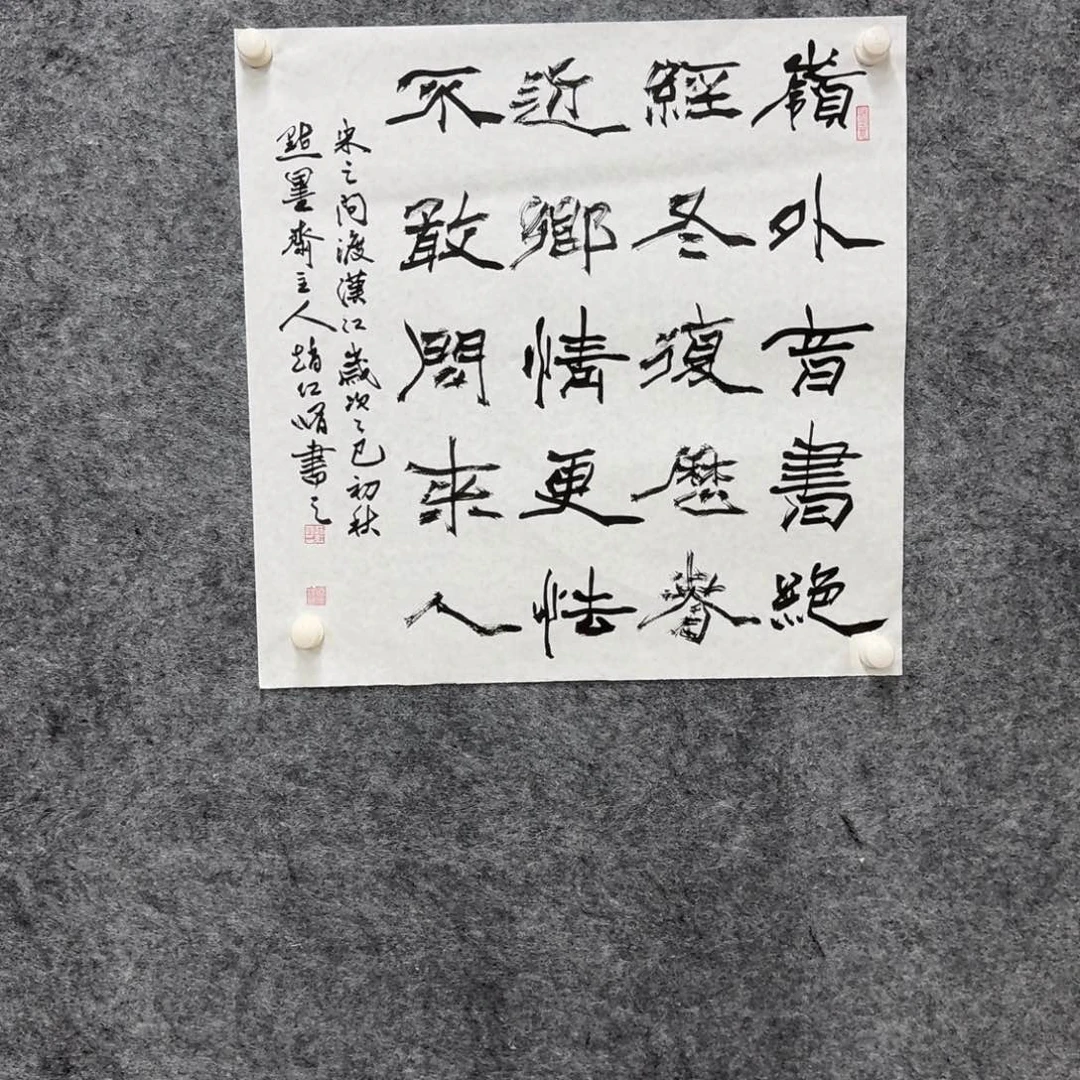 嶺外音書絕
經冬復歷春
近鄉情更怯
不敢問來人
宋之問渡漢江歲次乙巳初秋
點墨齋主人趙仁 書之